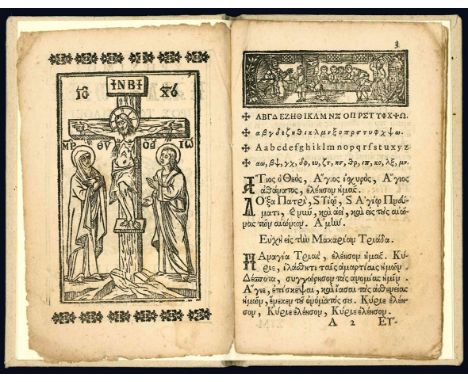 ΙΝΒΙ
ΜΡ ΘΥ
3
✠ ΑΒΓΔΕΖΗΘΙΚΛΜΝΞΟΠΡΣΤΥΦΧΨΩ.
✠ αβγδεζηθικλμνξοπρςτυφχψω.
✠ Aabcdefghiklmnopqrſstuxyz
✠ αω, βψ, γχ, δφ, ευ, ζτ, ης, θρ, ιπ, κο, λξ, μν.
Ἅγιος ὁ Θεὸς, Ἅγιος ἰσχυρὸς, Ἅγιος
ἀθάνατος, ἐλέησον ἡμᾶς.
Δόξα Πατρὶ, ϗ Υἱῷ, ϗ Ἁγίῳ Πνεύ-
ματι, καὶ νῦν, καὶ ἀεὶ, καὶ εἰς τοὺς αἰῶνας
τῶν αἰώνων. Ἀμήν.
Εὐχὴ εἰς τὴν Μακαρίαν Τριάδα.
Παναγία Τριὰς, ἐλέησον ἡμᾶς. Κύ-
ριε, ἱλάσθητι ταῖς ἁμαρτίαις ἡμῶν.
Δέσποτα, συγχώρησον τὰς ἀνομίας ἡμῖν.
Ἅγιε, ἐπίσκεψαι, καὶ ἴασαι τὰς ἀσθενείας
ἡμῶν, ἕνεκεν τοῦ ὀνόματός σου. Κύριε ἐλέη-
σον, Κύριε ἐλέησον, Κύριε ἐλέησον.
Α 2 ΕΓ-